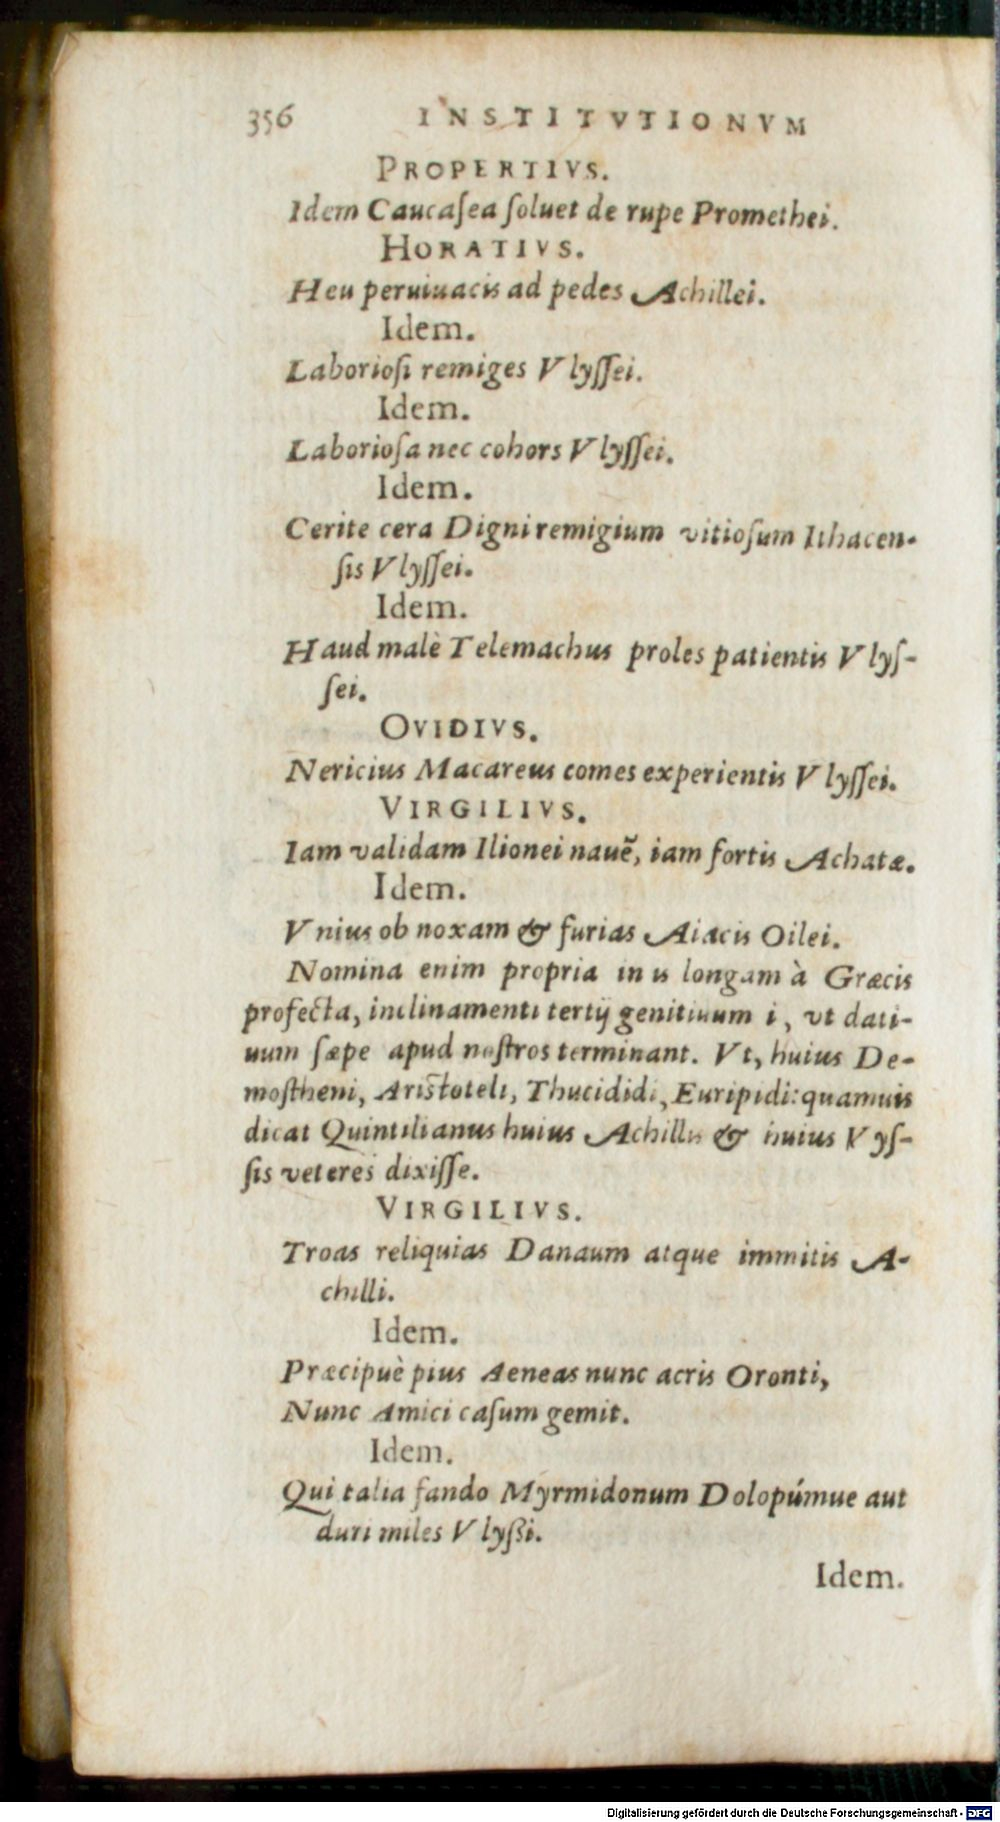 356 INSTITVTIONVM
PROPERTIVS.
Idem Caucaſea ſoluet de rupe Promethei.
HORATIVS.
Heu peruiuacis ad pedes Achillei.
Idem.
Laborioſi remiges Vlyſſei.
Idem.
Laborioſa nec cohors Vlyſſei.
Idem.
Cerite cera Digni remigium vitioſum Ithacen-
ſis Vlyſſei.
Idem.
Haud malè Telemachus proles patientis Vlyſ-
ſei.
OVIDIVS.
Nericius Macareus comes experientis Vlyſſei.
VIRGILIVS.
Iam validam Ilionei nauẽ, iam fortis Achatæ.
Idem.
Vnius ob noxam & furias Aiacis Oilei.
Nomina enim propria in is longam à Græcis
profecta, inclinamenti tertij genitiuum i, vt dati-
uum ſæpe apud noſtros terminant. Vt, huius De-
moſtheni, Ariſtoteli, Thucididi, Euripidi: quamuis
dicat Quintilianus huius Achillis & huius Vyſ-
ſis veteres dixiſſe.
VIRGILIVS.
Troas reliquias Danaum atque immitis A-
chilli.
Idem.
Præcipuè pius Aeneas nunc acris Oronti,
Nunc Amici caſum gemit.
Idem.
Qui talia fando Myrmidonum Dolopúmue aut
duri miles Vlyßi.
Idem.
Digitalisierung gefördert durch die Deutsche Forschungsgemeinschaft - DFG